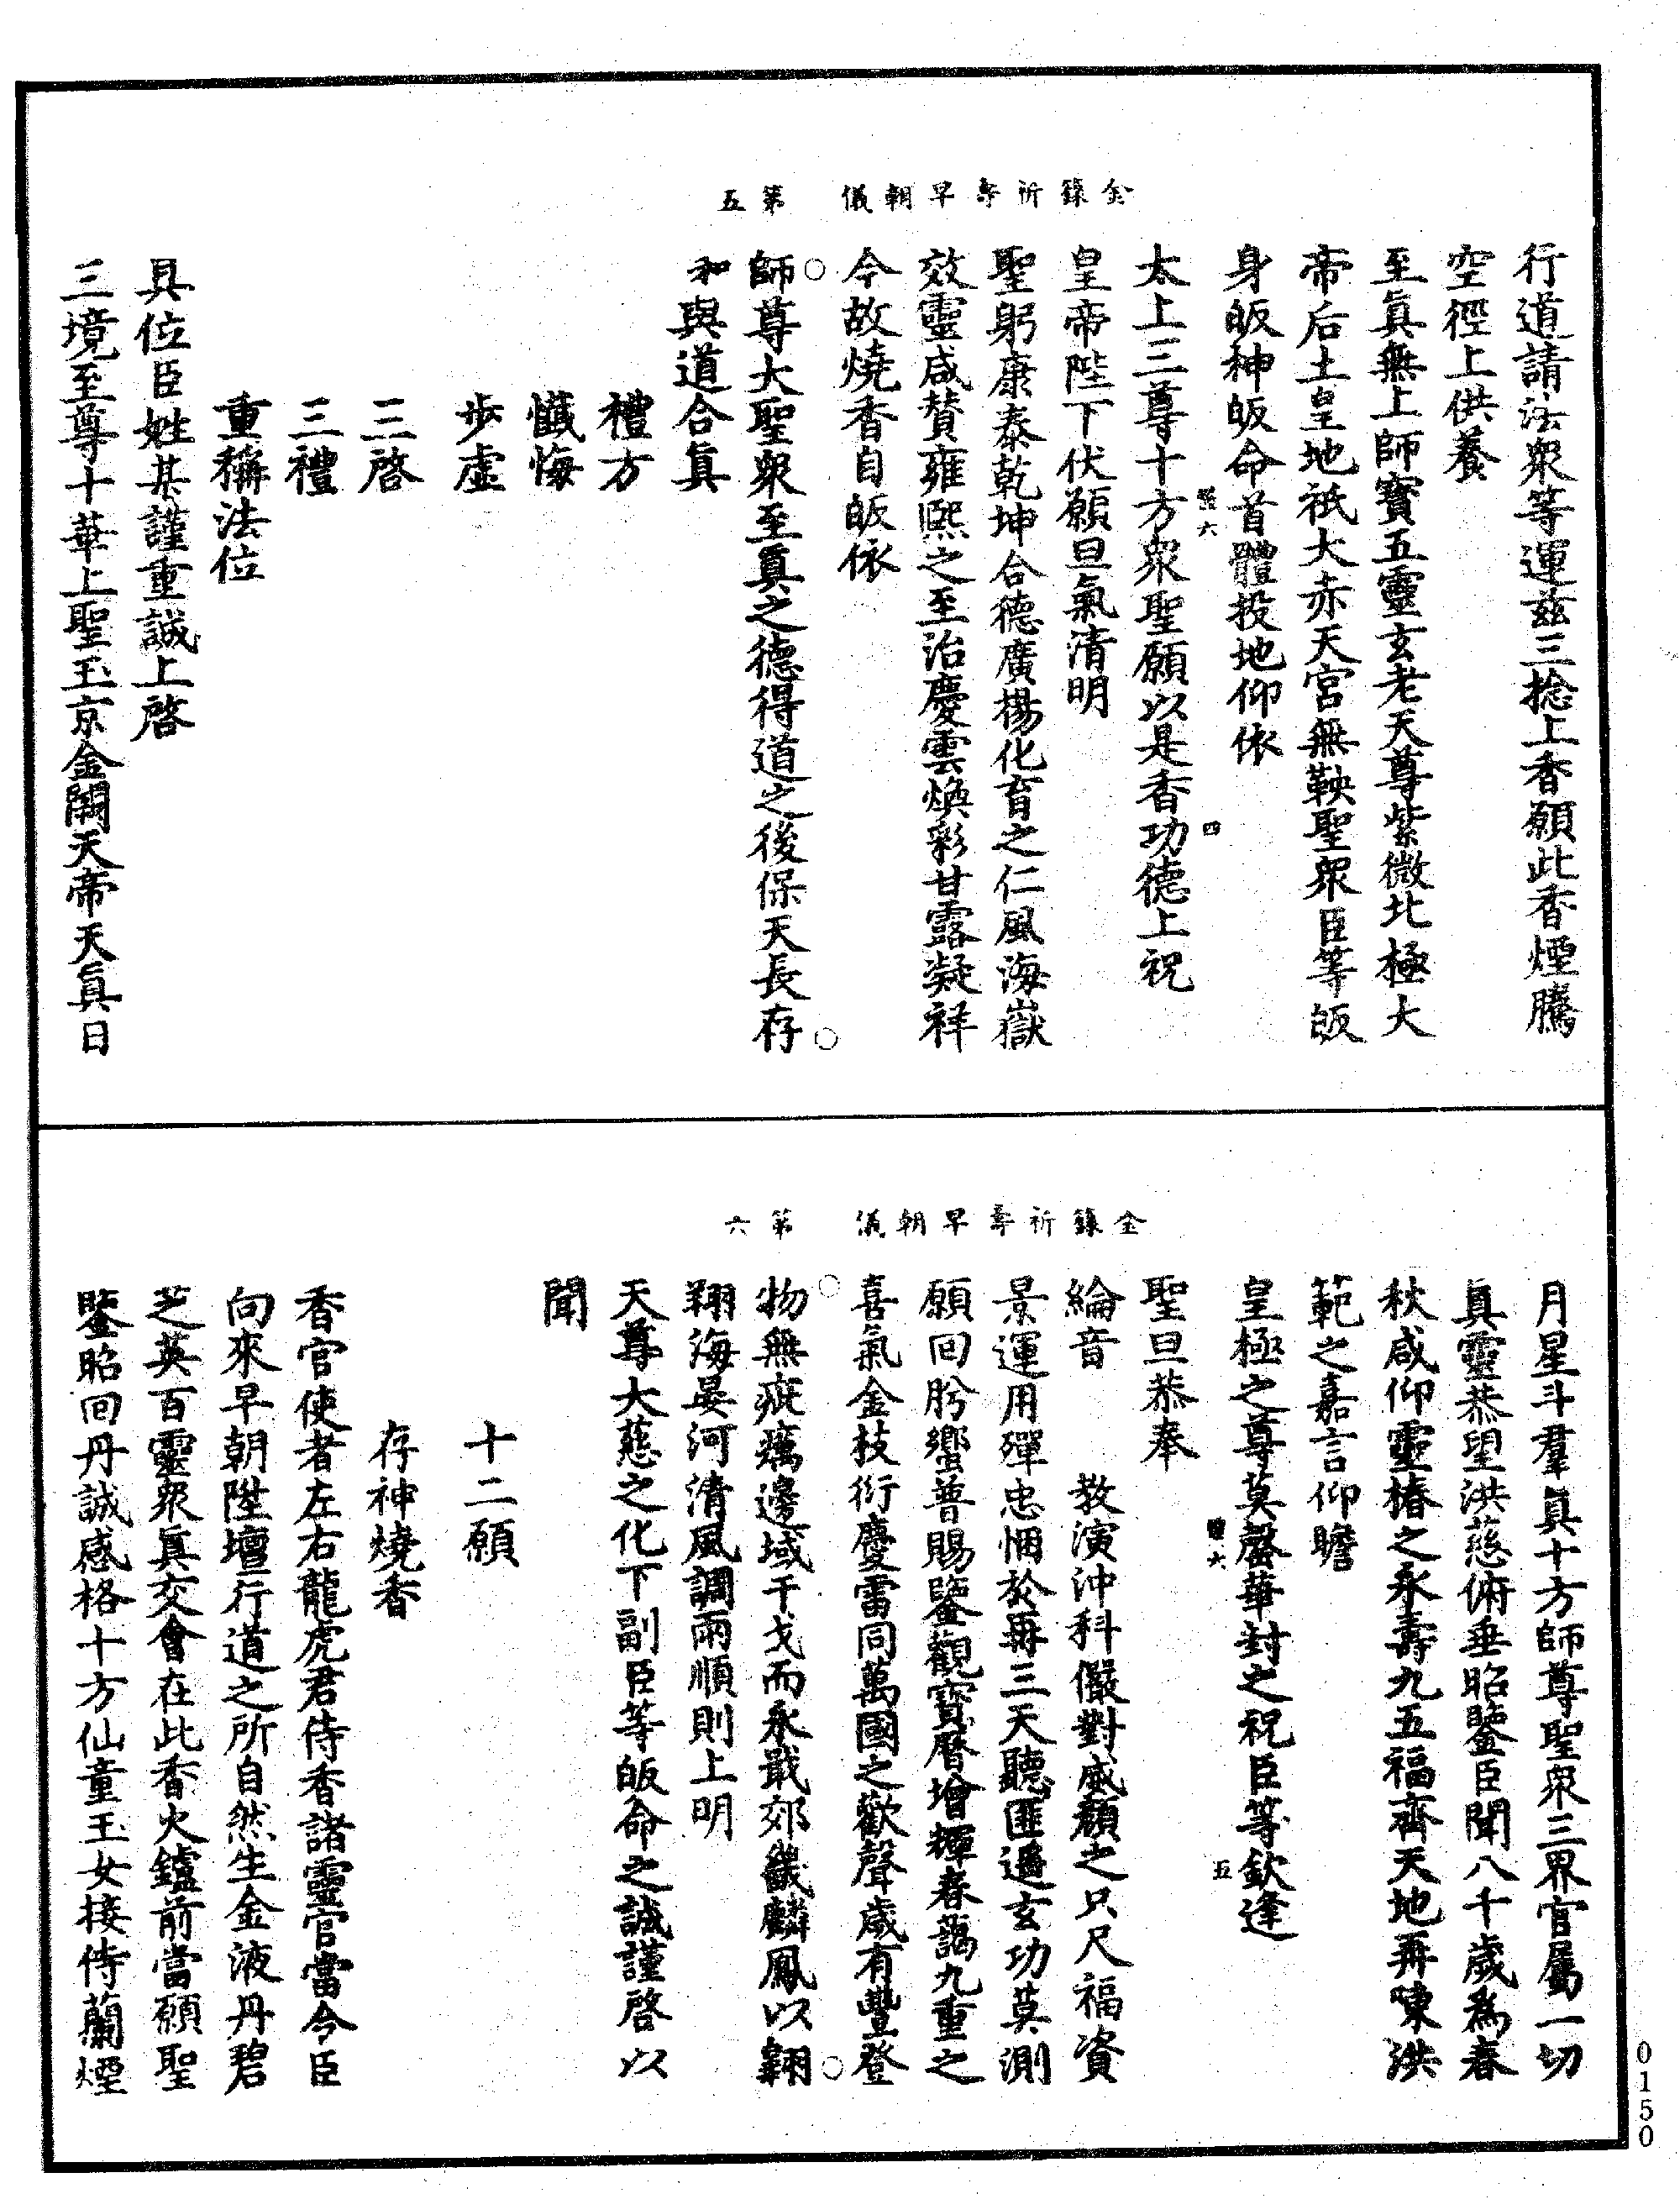 金籙祈壽早朝儀　第五
行道請法衆等運茲三捻上香願此香煙騰
空徑上供養
至眞無上師寶五靈玄老天尊紫微北極大
帝后土皇地祇大赤天宮無鞅聖衆臣等皈
身皈神皈命首體投地仰依
太上三尊十方衆聖願以是香功德上祝
皇帝陛下伏願旦氣清明
聖躬康泰乾坤合德廣揚化育之仁風海嶽
效靈咸賛雍熙之至治慶雲煥彩甘露凝祥
今故燒香自皈依
師尊大聖衆至眞之德得道之後保天長存
和與道合眞
禮方
懺悔
步虛
三啓
三禮
重稱法位
具位臣姓某謹重誠上啓
三境至尊十華上聖玉京金闕天帝天眞日
金籙祈壽早朝儀　第六
月星斗羣眞十方師尊聖衆三界官屬一切
眞靈恭望洪慈俯垂昭鑒臣聞八千歲爲春
秋咸仰靈椿之永壽九五福齊天地再陳洪
範之嘉言仰瞻
皇極之尊莫罄華封之祝臣等欽逢
聖旦恭奉
綸音　教演沖科儼對威顏之只尺福資
景運用殫忠悃於再三天聽匪過玄功莫測
願回肹蠁普賜鑒觀寶曆增輝春藹九重之
喜氣金枝衍慶雷同萬國之歡聲歲有豐登
物無疵癘邊域干戈而永戢郊畿麟鳳以翱
翔海晏河清風調雨順則上明
天尊大慈之化下副臣等皈命之誠謹啓以
聞
十二願
存神燒香
香官使者左右龍虎君侍香諸靈官當令臣
向來早朝陞壇行道之所自然生金液丹碧
芝英百靈衆眞交會在此香火鑪前當願聖
鑒昭回丹誠感格十方仙童玉女接侍蘭煙
0150